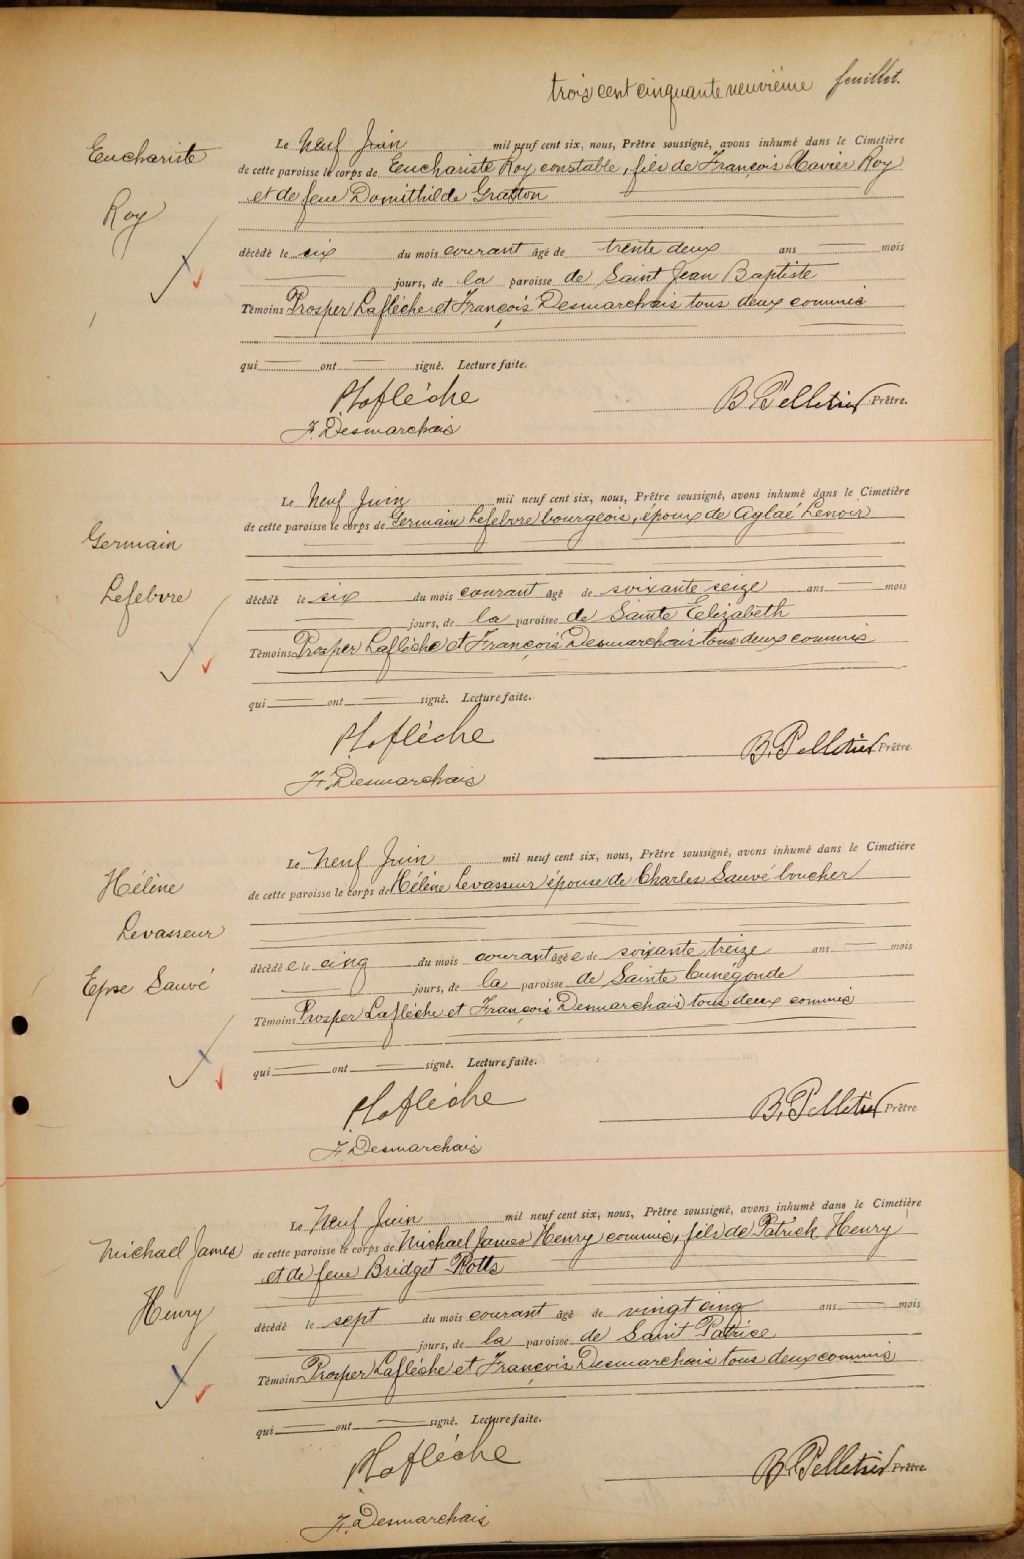 trois cent cinquante neuvième feuillet.
Euchariste
Roy
Le Neuf Juin mil neuf cent six, nous, Prêtre soussigné, avons inhumé dans le Cimetière
de cette paroisse le corps de Euchariste Roy constable, fils de François Xavier Roy
et de feue Domithilde Gratton
décédé le six du mois courant âgé de trente deux ans mois
jours, de la paroisse de Saint Jean Baptiste
Témoins Prosper Laflèche et François Desmarchais tous deux commis
qui ont signé. Lecture faite.
P. Laflèche
B. Pelletier Prêtre.
F. Desmarchais
Germain
Lefebvre
Le Neuf Juin mil neuf cent six, nous, Prêtre soussigné, avons inhumé dans le Cimetière
de cette paroisse le corps de Germain Lefebvre bourgeois, époux de Aglaé Lenoir
décédé le six du mois courant âgé de soixante seize ans mois
jours, de la paroisse de Sainte Eelizabeth
Témoins Prosper Laflèche et François Desmarchais tous deux commis
qui ont signé. Lecture faite.
P. Laflèche
B. Pelletier Prêtre.
F. Desmarchais
Hélène
Levasseur
Epse Sauvé
Le Neuf Juin mil neuf cent six, nous, Prêtre soussigné, avons inhumé dans le Cimetière
de cette paroisse le corps de Hélène Levasseur épouse de Charles Sauvé boucher
décédée le cinq du mois courant âgée de soixante treize ans mois
jours, de la paroisse de Sainte Cunégonde
Témoins Prosper Laflèche et François Desmarchais tous deux commis
qui ont signé. Lecture faite.
P. Laflèche
B. Pelletier Prêtre
F. Desmarchais
Michael James
Henry
Le Neuf Juin mil neuf cent six, nous, Prêtre soussigné, avons inhumé dans le Cimetière
de cette paroisse le corps de Michael James Henry commis, fils de Patrick Henry
et de feue Bridget Potts
décédé le sept du mois courant âgé de vingt cinq ans mois
jours, de la paroisse de Saint Patrice
Témoins Prosper Laflèche et François Desmarchais tous deux commis
qui ont signé. Lecture faite.
P. Laflèche
B. Pelletier Prêtre.
F. Desmarchais